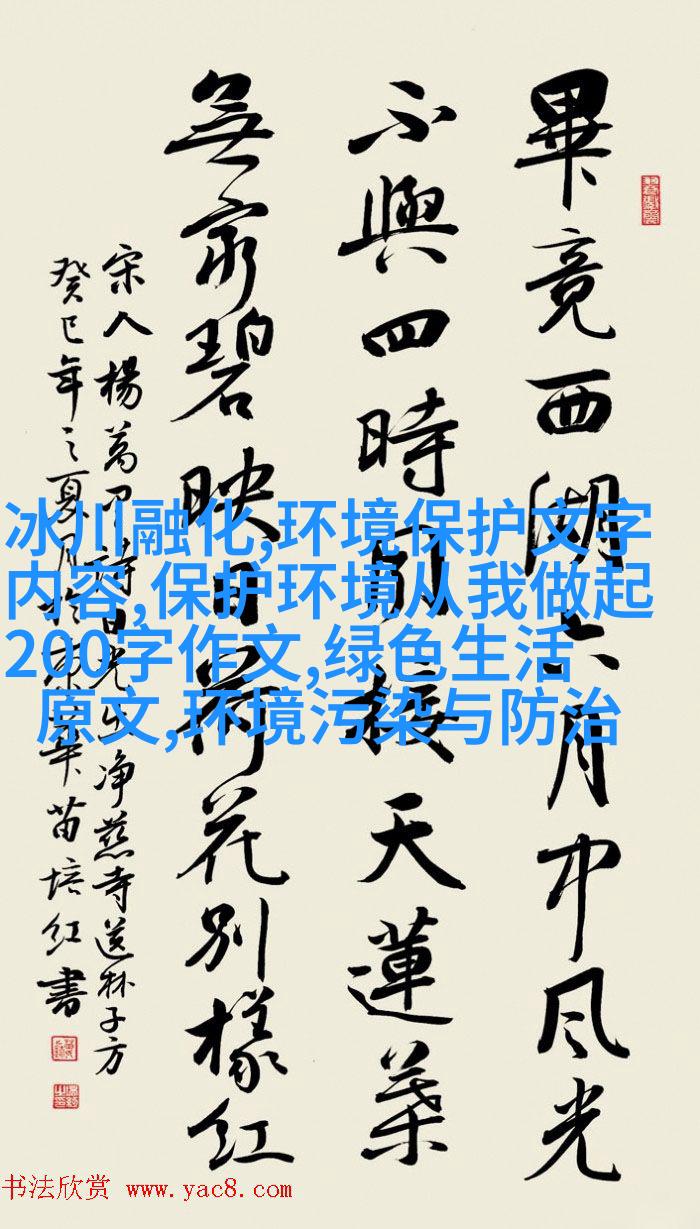 畢竟西湖六月中风光
不與四時同接天蓮葉
無窮碧映日荷花别樣红
宋人楊萬里詩晓出净慈寺送林子方
癸巳年之夏月於京華苗培红書
冰川融化,环境保护文字
内容,保护环境从我做起
200字作文,绿色生活
原文,环境污染与防治
书法欣赏 www.yac8.com